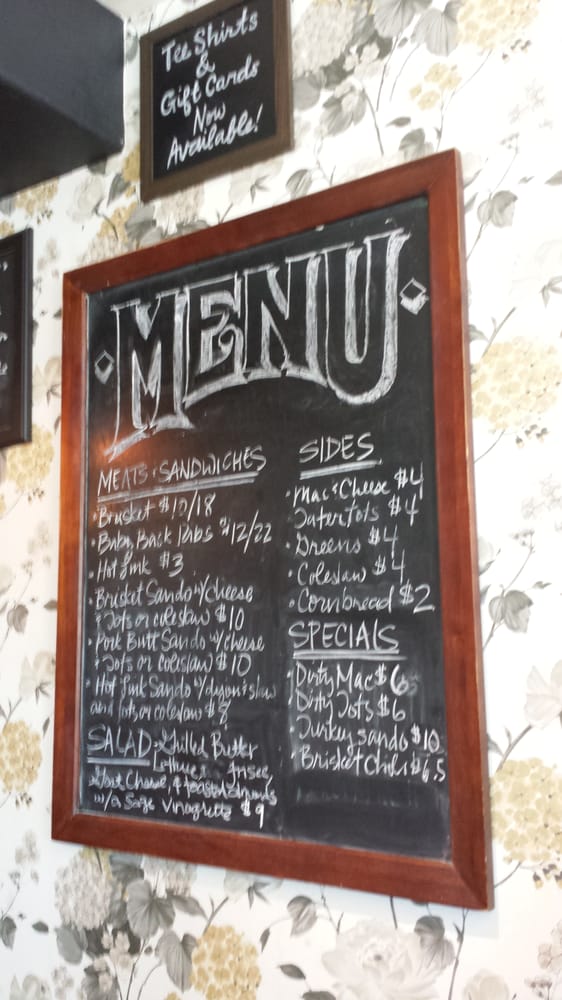 Tee Shirts
&
Gift Cards
Now
Available!
MENU
MEATS · SANDWICHES
· Brisket $10/18
· Baby Back Ribs $12/22
· Hot Link $3
· Brisket Sando w/cheese
& Tots or coleslaw $10
· Pork Butt Sando w/cheese
& Tots or coleslaw $10
· Hot Link Sando w/dijon & slaw
and tots or coleslaw $8
SALAD · Grilled Butter
Lettuce, Frisee,
Goat Cheese, & toasted almonds
w/a Sage Vinagrette $9
SIDES
· Mac & Cheese $4
· Tater Tots $4
· Greens $4
· Coleslaw $4
· Cornbread $2
SPECIALS
· Dirty Mac $6
Dirty Tots $6
Turkey sando $10
· Brisket Chili $6.5